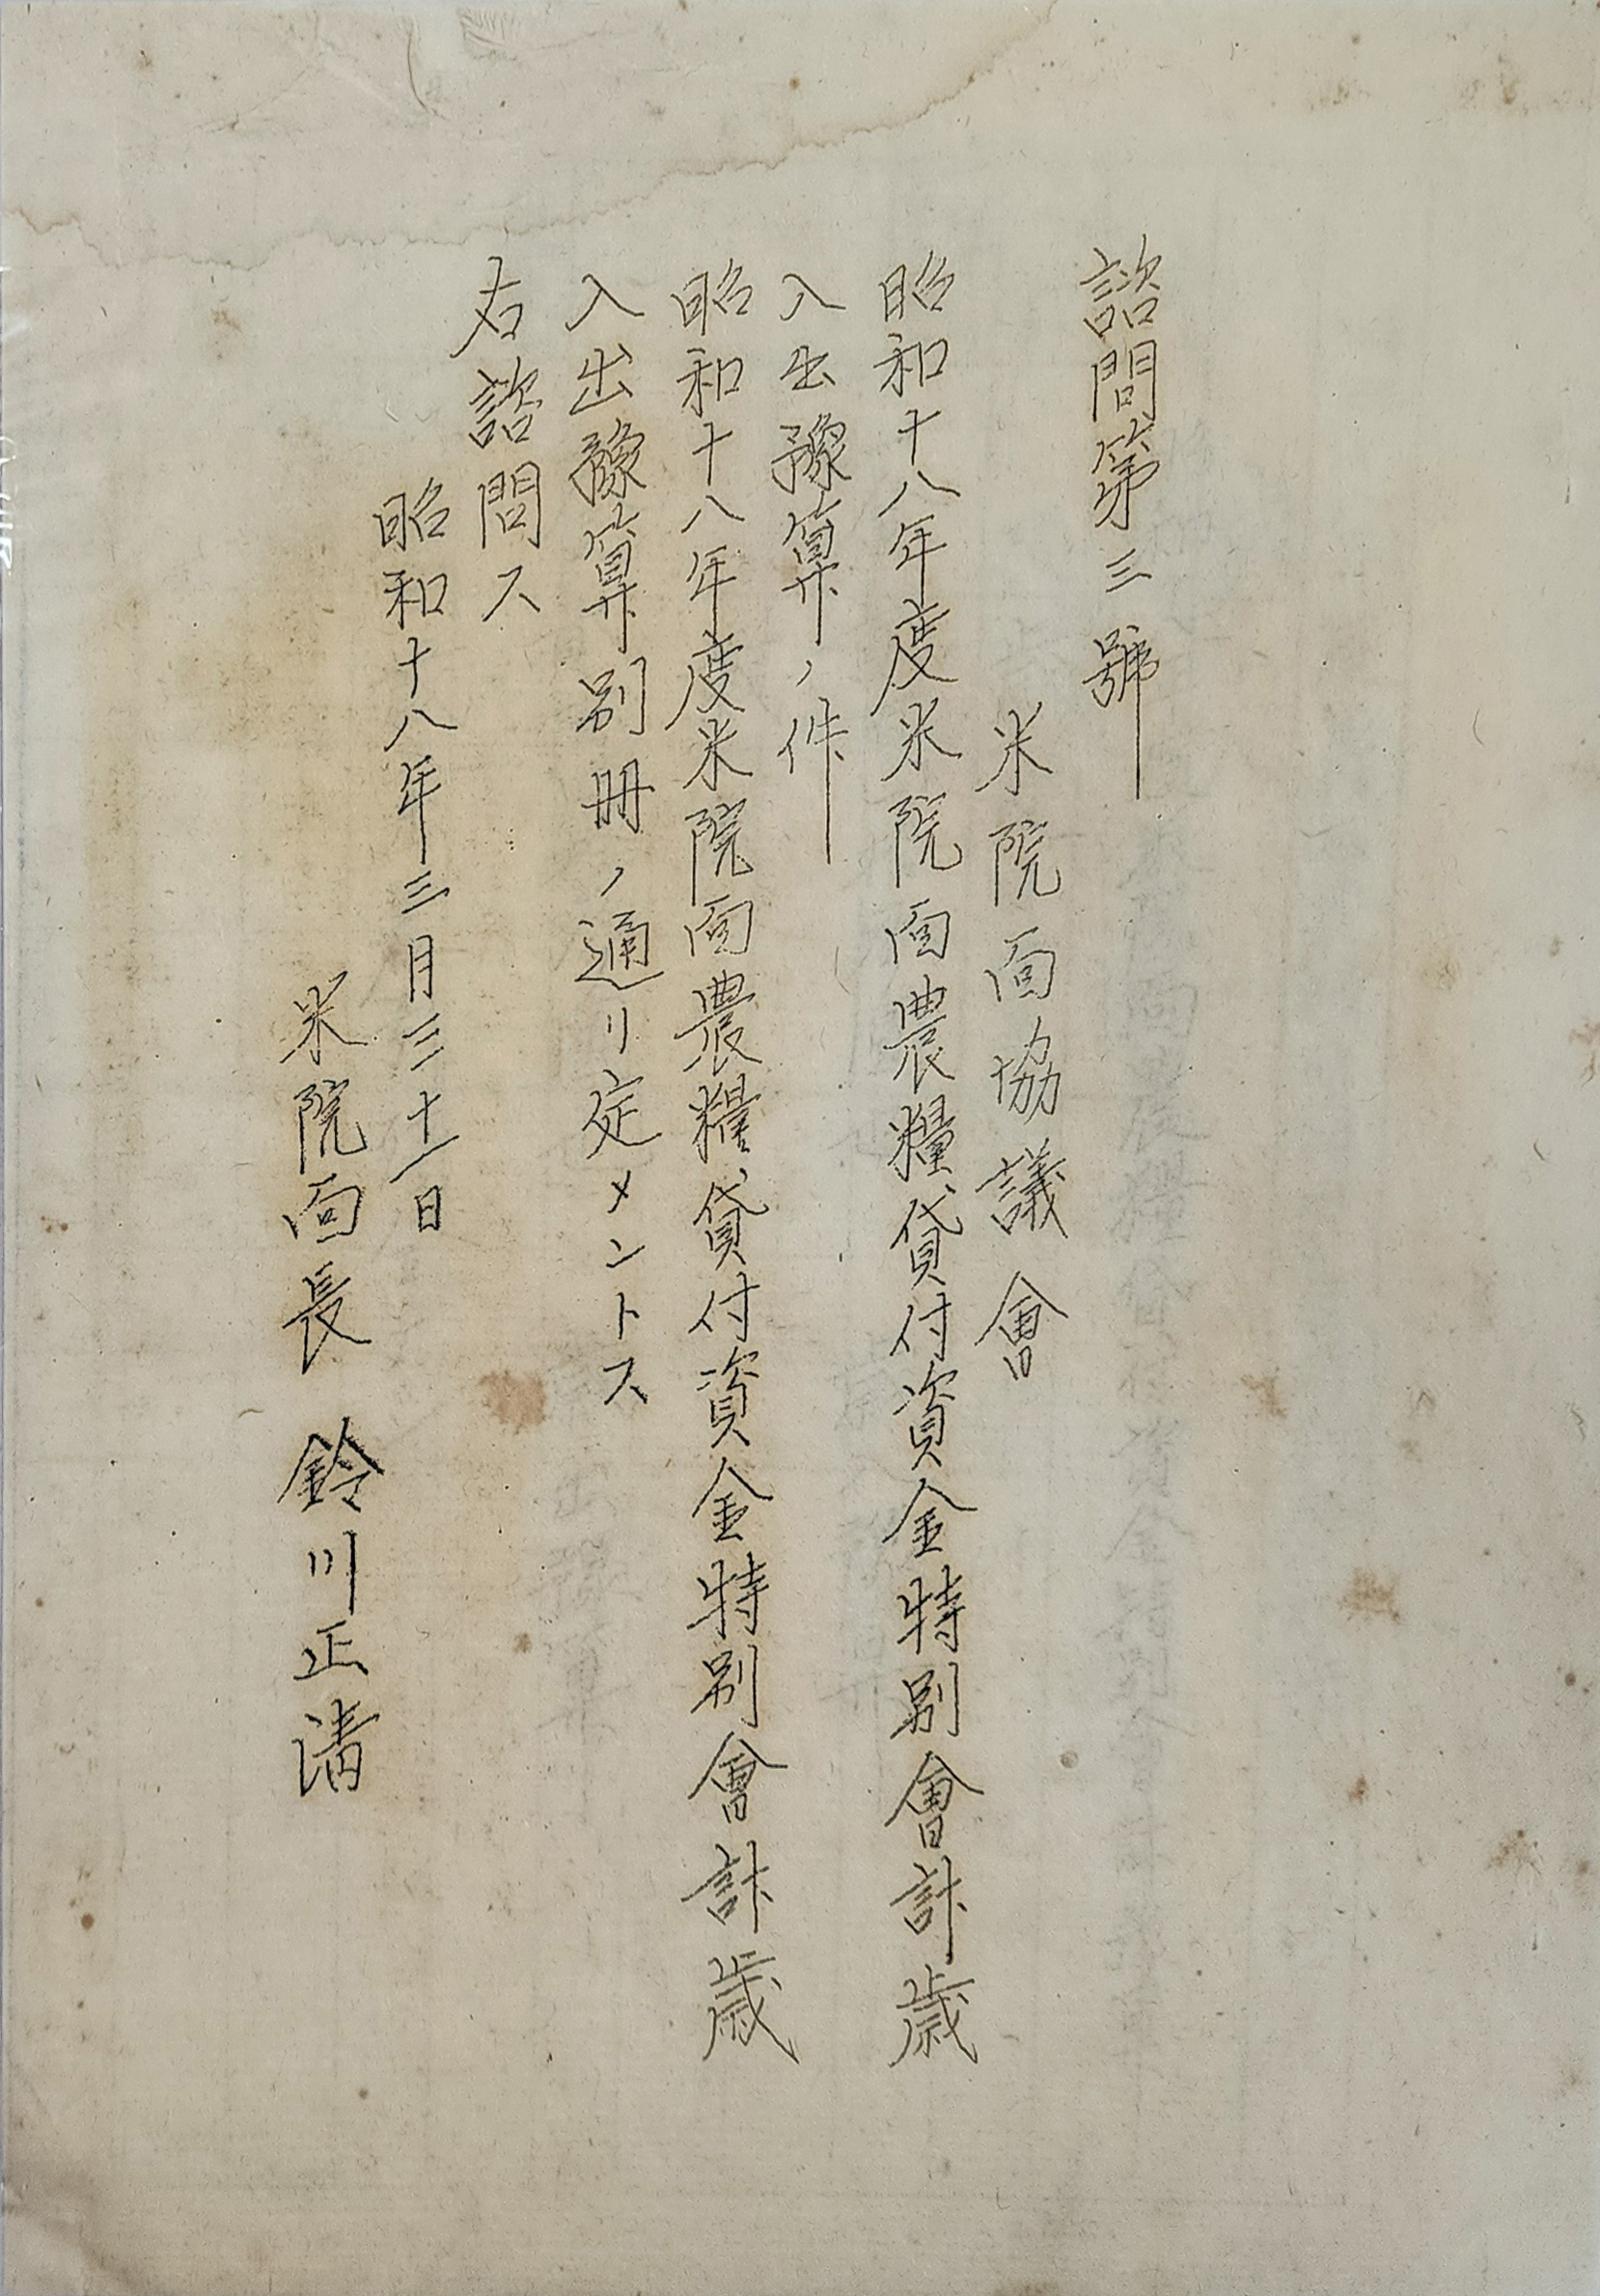 諮問第三號
米院面協議會
昭和十八年度米院面農糧貸付資金特別會計歳
入出豫算ノ件
昭和十八年度米院面農糧貸付資金特別會計歳
入出豫算別冊ノ通リ定メントス
右諮問ス
昭和十八年三月三十一日
米院面長 鈴川正淸